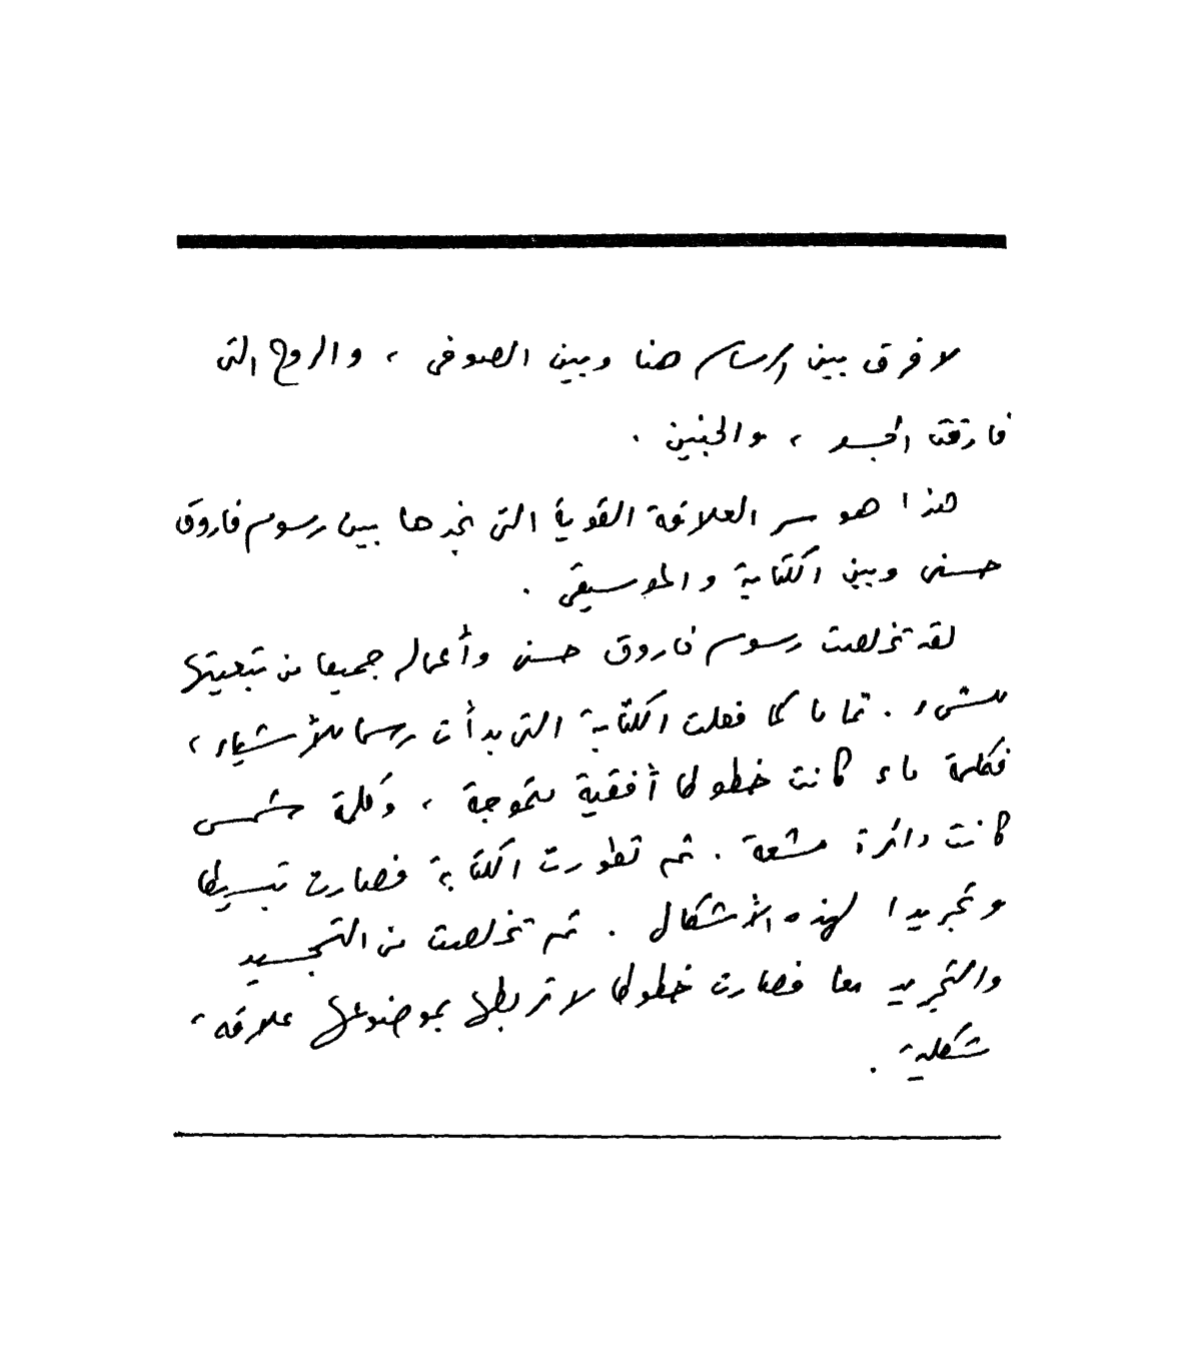 لا فرق بين الرسام هنا وبين الصوفى ، والروح التى
فارقت الجسد ، والجنين .
هذا هو سر العلاقة القوية التى نجدها بين رسوم فاروق
حسنى وبين الكتابة والموسيقى .
لقد تخلصت رسوم فاروق حسنى وأعماله جميعا من تبعيتها
للشىء . تماما كما فعلت الكتابة التى بدأت رسما للأشياء ،
فكلمة ماء كانت خطوطا أفقية متموجة ، وكلمة شمس
كانت دائرة مشعة . ثم تطورت الكتابة فصارت تبسيطا
وتجريدا لهذه الأشكال . ثم تخلصت من التجسيد
والتجريد معا فصارت خطوطا لا تربطها بموضوعها علاقة
شكلية .